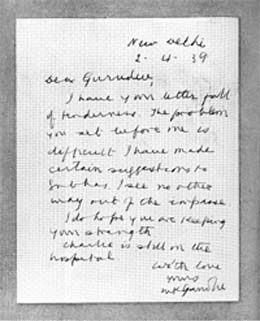 New Delhi
2-4-39
Dear Gurudev,
I have your letter full
of tenderness. The problem
you set before me is
difficult. I have made
certain suggestions to
Subhas. I see no other
way out of the impasse.
I do hope you are keeping
your strength.
Charlie is still in the
hospital.
With love
yours
MKGandhi